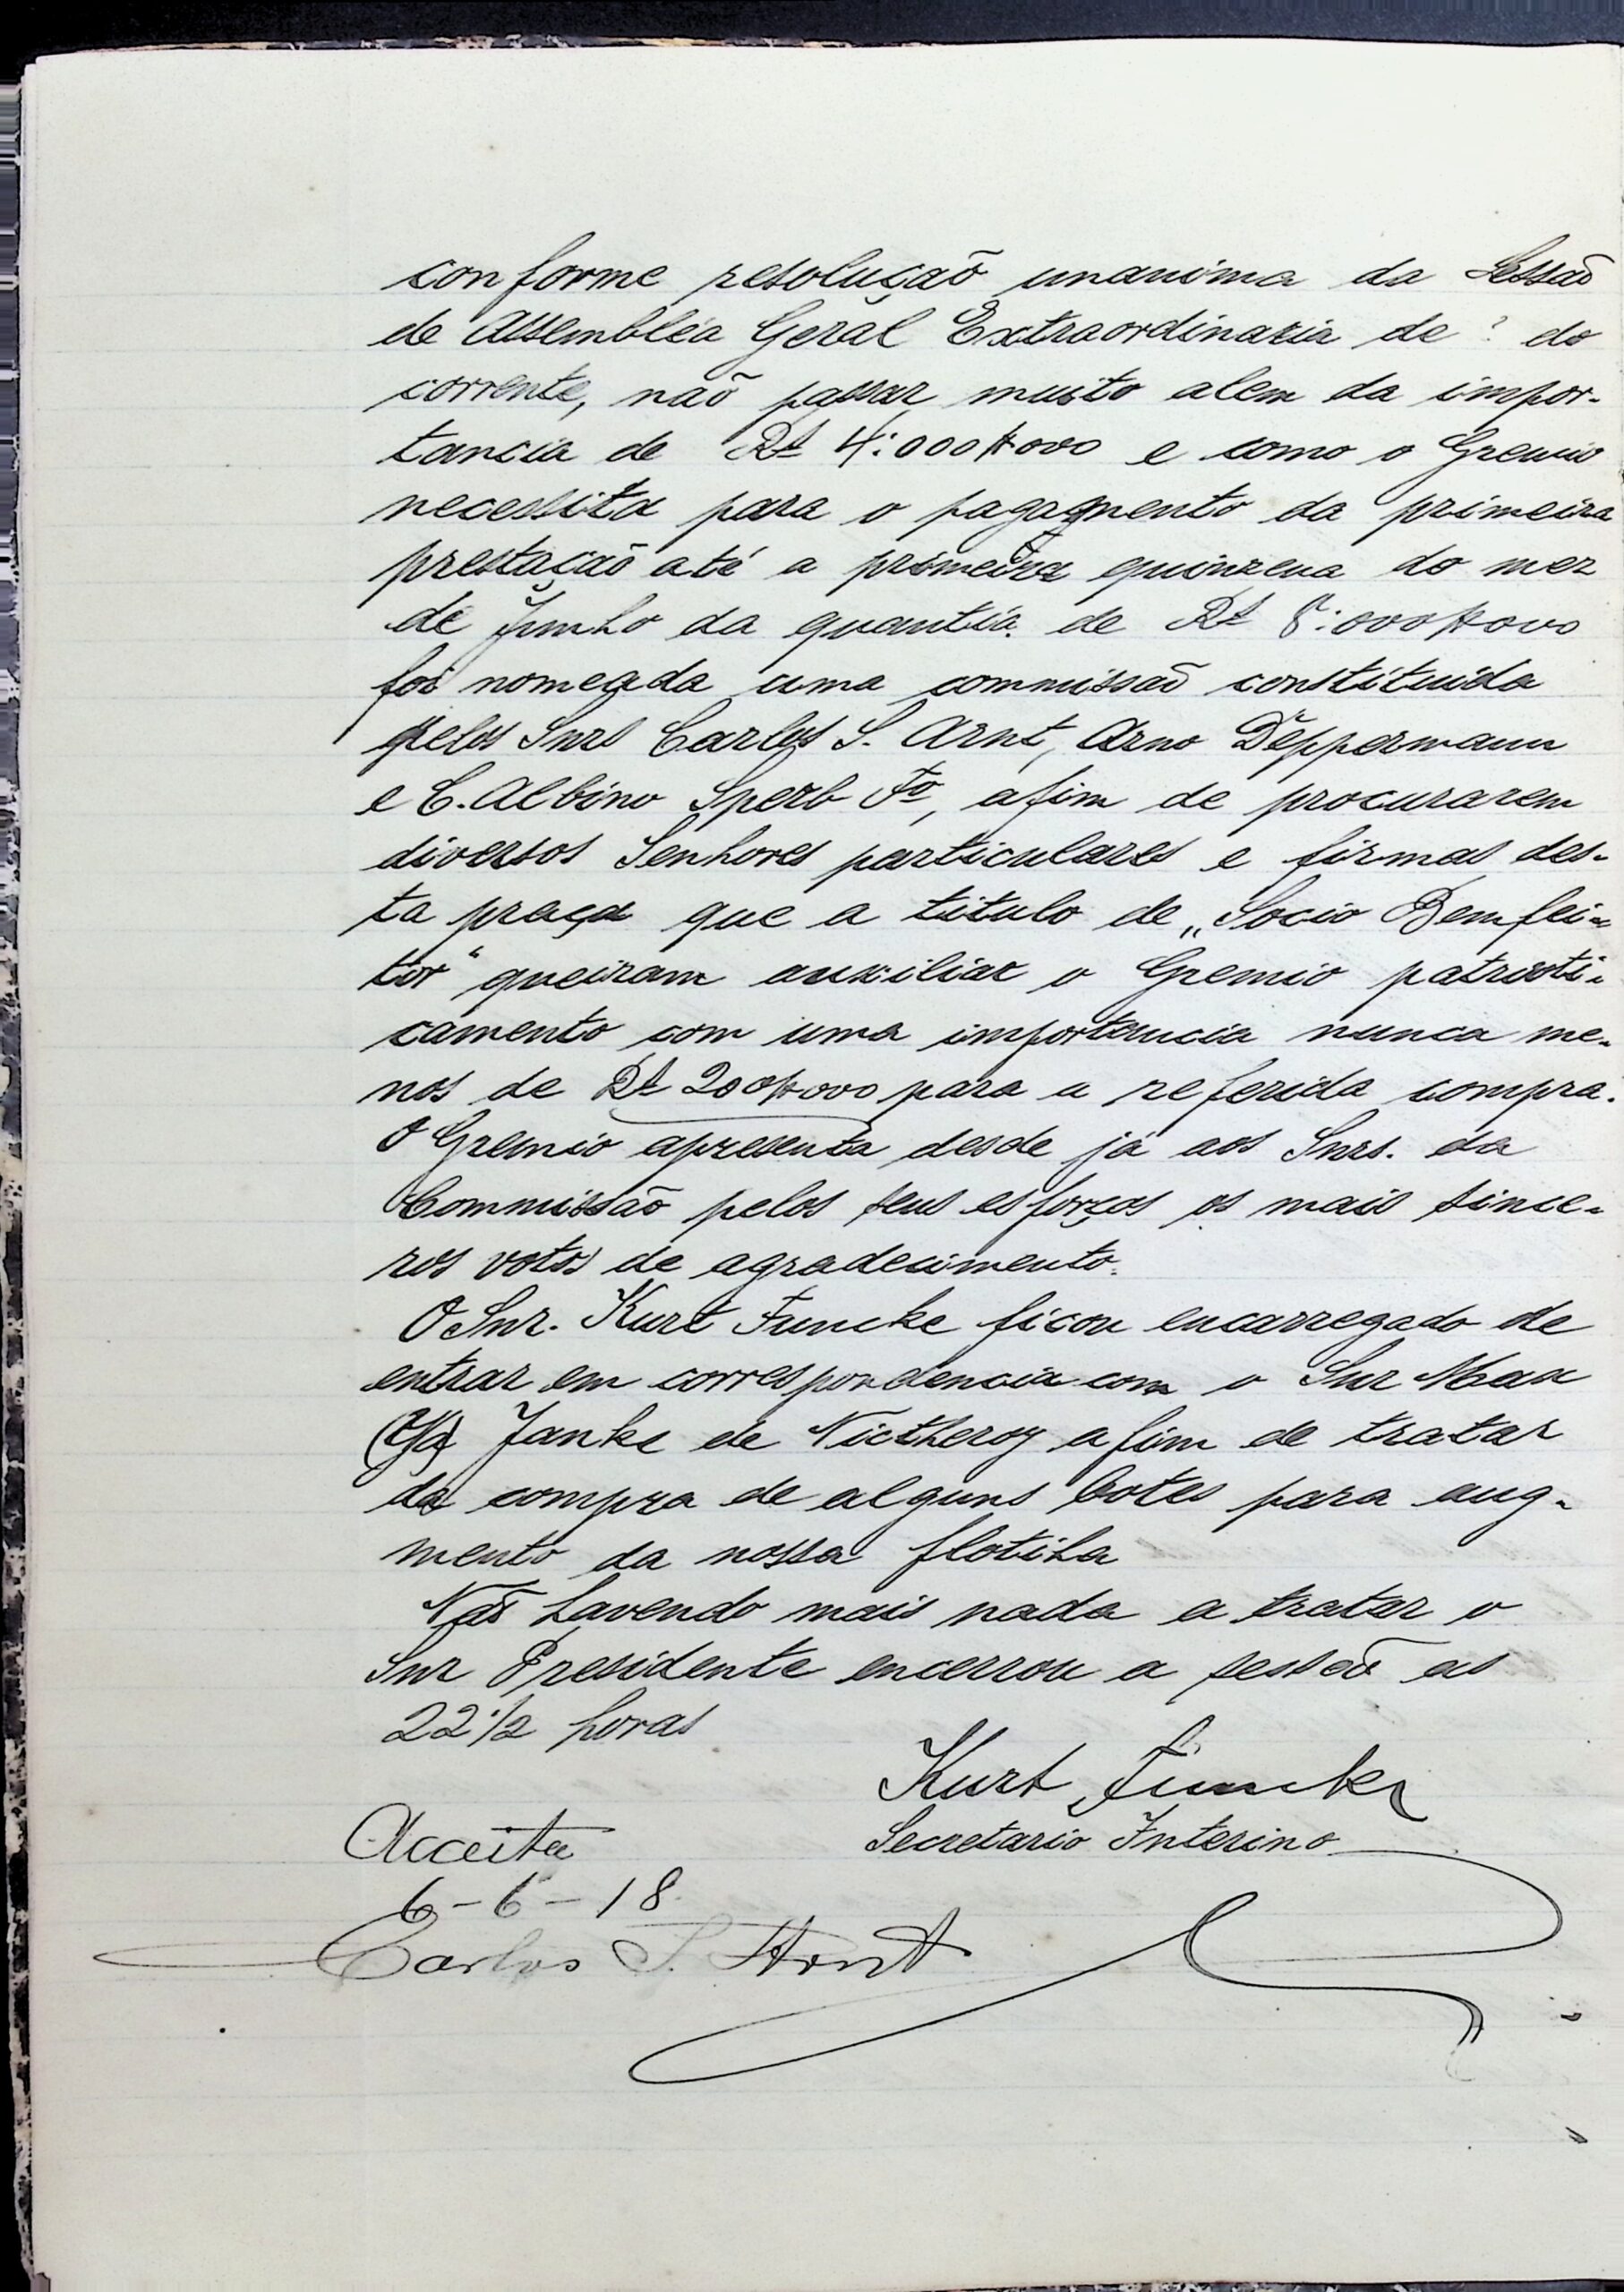 conforme resolução unanima da Sessão
de Assembléa Geral Extraordinaria de ? do
corrente, não passar muito alem da impor-
tancia de Rs 4:000$000 e como o Gremio
necessita para o pagagmento da primeira
prestação até a primeira quinzena do mez
de Junho da quantia de Rs 8:000$000
foi nomeada uma commissão constituida
pelos Snrs Carlos S. Arnt, Arno Deppermann
e C. Albino Sperb Fo, afim de procurarem
diversos Senhores particulares e firmas des-
ta praça que a titulo de „Socio Bemfei-
tor" queiram auxiliar o Gremio patrioti-
camento com uma importancia nunca me-
nos de Rs 200$000 para a referida compra.
O Gremio apresenta desde já aos Snrs. da
Commissão pelos seus esforços os mais since-
ros votos de agradecimento.
O Snr. Kurt Funcke ficou encarregado de
entrar em correspondencia com o Snr Max
Janke de Nictheroy afim de tratar
da compra de alguns botes para aug-
mento da nossa flotilha
Não havendo mais nada a tratar o
Snr Presidente encerrou a sessão as
22 1/2 horas
Kurt Funcke
Secretario Interino
Acceita
6-6-18
Carlos S. Arnt